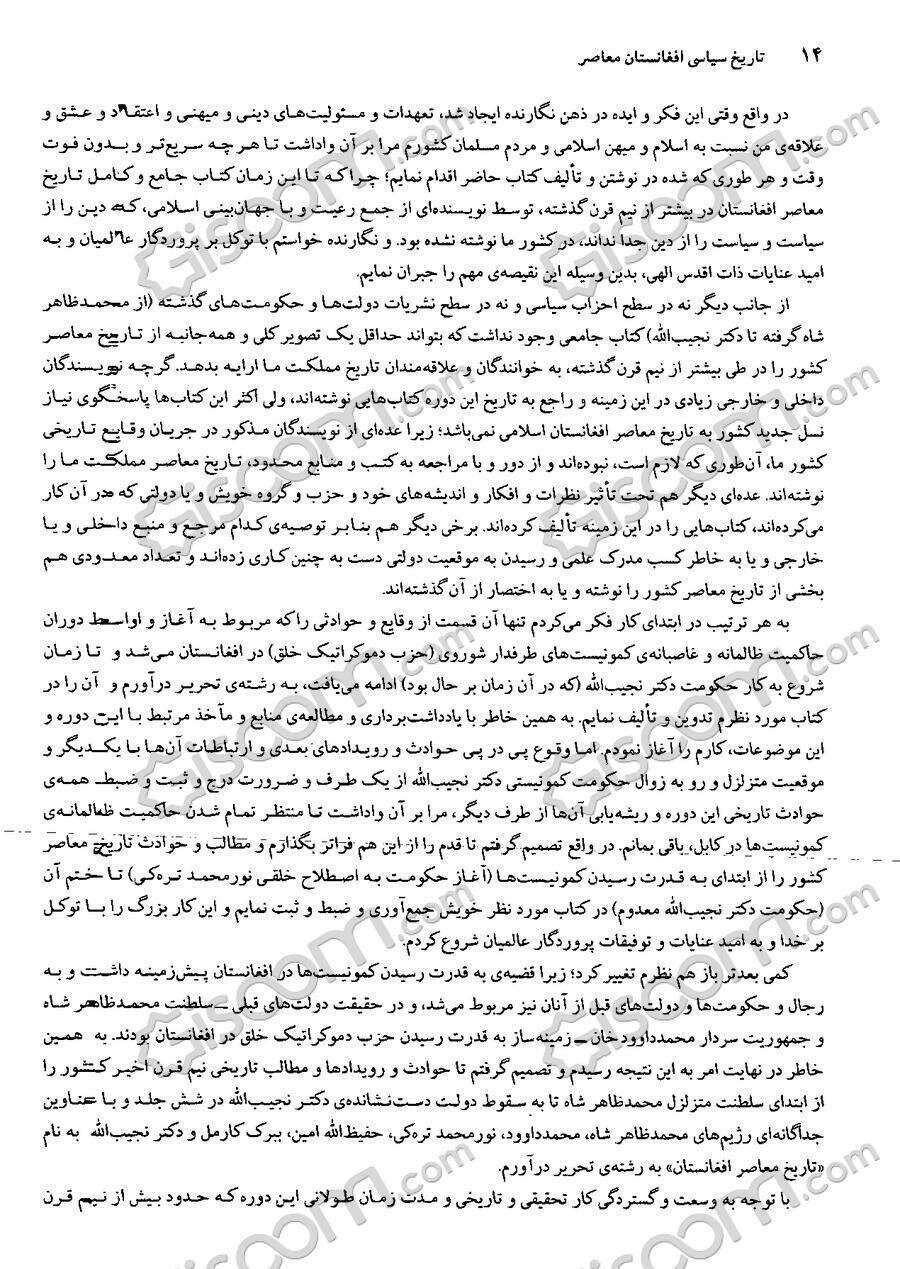 ۱۴ تاریخ سیاسی افغانستان معاصر
در واقع وقتی این فکر و ایده در ذهن نگارنده ایجاد شد، تعهدات و مسئولیت‌های دینی و میهنی و اعتقاد و عشق و
علاقه‌ی من نسبت به اسلام و میهن اسلامی و مردم مسلمان کشورم مرا بر آن واداشت تا هر چه سریع‌تر و بدون فوت
وقت و هر طوری که شده در نوشتن و تألیف کتاب حاضر اقدام نمایم؛ چرا که تا این زمان کتاب جامع و کامل تاریخ
معاصر افغانستان در بیشتر از نیم قرن گذشته، توسط نویسنده‌ای از جمع رعیت و با جهان‌بینی اسلامی، که دین را از
سیاست و سیاست را از دین جدا نداند، در کشور ما نوشته نشده بود. و نگارنده خواستم با توکل بر پروردگار عالمیان و به
امید عنایات ذات اقدس الهی، بدین وسیله این نقیصه‌ی مهم را جبران نمایم.
از جانب دیگر نه در سطح احزاب سیاسی و نه در سطح نشریات دولت‌ها و حکومت‌های گذشته (از محمدظاهر
شاه گرفته تا دکتر نجیب‌الله) کتاب جامعی وجود نداشت که بتواند حداقل یک تصویر کلی و همه‌جانبه از تاریخ معاصر
کشور را در طی بیشتر از نیم قرن گذشته، به خوانندگان و علاقه‌مندان تاریخ مملکت ما ارایه بدهد. گرچه نویسندگان
داخلی و خارجی زیادی در این زمینه و راجع به تاریخ این دوره کتاب‌هایی نوشته‌اند، ولی اکثر این کتاب‌ها پاسخگوی نیاز
نسل جدید کشور به تاریخ معاصر افغانستان اسلامی نمی‌باشد؛ زیرا عده‌ای از نویسندگان مذکور در جریان وقایع تاریخی
کشور ما، آن‌طوری که لازم است، نبوده‌اند و از دور و با مراجعه به کتب و منابع محدود، تاریخ معاصر مملکت ما را
نوشته‌اند. عده‌ای دیگر هم تحت تأثیر نظرات و افکار و اندیشه‌های خود و حزب و گروه خویش و یا دولتی که در آن کار
می‌کرده‌اند، کتاب‌هایی را در این زمینه تألیف کرده‌اند. برخی دیگر هم بنابر توصیه‌ی کدام مرجع و منبع داخلی و یا
خارجی و یا به خاطر کسب مدرک علمی و رسیدن به موقعیت دولتی دست به چنین کاری زده‌اند و تعداد معدودی هم
بخشی از تاریخ معاصر کشور را نوشته و یا به اختصار از آن گذشته‌اند.
به هر ترتیب در ابتدای کار فکر می‌کردم تنها آن قسمت از وقایع و حوادثی را که مربوط به آغاز و اواسط دوران
حاکمیت ظالمانه و غاصبانه‌ی کمونیست‌های طرفدار شوروی (حزب دموکراتیک خلق) در افغانستان می‌شد و تا زمان
شروع به کار حکومت دکتر نجیب‌الله (که در آن زمان بر حال بود) ادامه می‌یافت، به رشته‌ی تحریر درآورم و آن را در
کتاب مورد نظرم تدوین و تألیف نمایم. به همین خاطر با یادداشت‌برداری و مطالعه‌ی منابع و مآخذ مرتبط با این دوره و
این موضوعات، کارم را آغاز نمودم. اما وقوع پی در پی حوادث و رویدادهای بعدی و ارتباطات آن‌ها با یکدیگر و
موقعیت متزلزل و رو به زوال حکومت کمونیستی دکتر نجیب‌الله از یک طرف و ضرورت درج و ثبت و ضبط همه‌ی
حوادث تاریخی این دوره و ریشه‌یابی آن‌ها از طرف دیگر، مرا بر آن واداشت تا منتظر تمام شدن حاکمیت ظالمانه‌ی
کمونیست‌ها در کابل، باقی بمانم. در واقع تصمیم گرفتم تا قدم را از این هم فراتر بگذارم و مطالب و حوادث تاریخ معاصر
کشور را از ابتدای به قدرت رسیدن کمونیست‌ها (آغاز حکومت به اصطلاح خلقی نورمحمد تره‌کی) تا ختم آن
(حکومت دکتر نجیب‌الله معدوم) در کتاب مورد نظر خویش جمع‌آوری و ضبط و ثبت نمایم و این کار بزرگ را با توکل
بر خدا و به امید عنایات و توفیقات پروردگار عالمیان شروع کردم.
کمی بعدتر باز هم نظرم تغییر کرد؛ زیرا قضیه‌ی به قدرت رسیدن کمونیست‌ها در افغانستان پیش‌زمینه داشت و به
رجال و حکومت‌ها و دولت‌های قبل از آنان نیز مربوط می‌شد، و در حقیقت دولت‌های قبلی ــ سلطنت محمدظاهر شاه
و جمهوریت سردار محمدداوود خان ــ زمینه‌ساز به قدرت رسیدن حزب دموکراتیک خلق در افغانستان بودند. به همین
خاطر در نهایت امر به این نتیجه رسیدم و تصمیم گرفتم تا حوادث و رویدادها و مطالب تاریخی نیم قرن اخیر کشور را
از ابتدای سلطنت متزلزل محمدظاهر شاه تا به سقوط دولت دست‌نشانده‌ی دکتر نجیب‌الله در شش جلد و با عناوین
جداگانه‌ای رژیم‌های محمدظاهر شاه، محمدداوود، نورمحمد تره‌کی، حفیظ‌الله امین، ببرک کارمل و دکتر نجیب‌الله به نام
«تاریخ معاصر افغانستان» به رشته‌ی تحریر درآورم.
با توجه به وسعت و گستردگی کار تحقیقی و تاریخی و مدت زمان طولانی این دوره که حدود بیش از نیم قرن